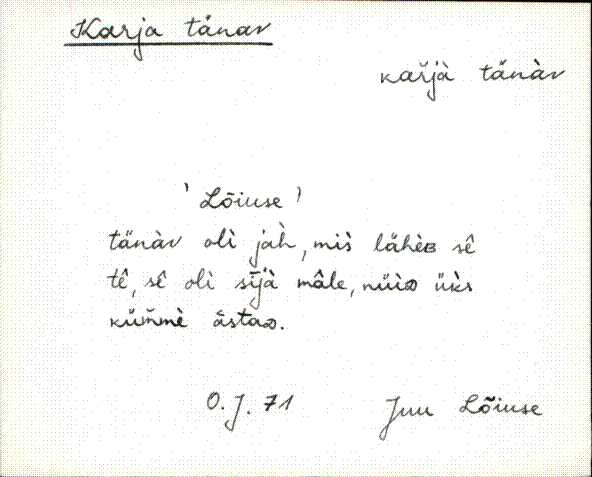 Karja tänav
kar̆jà tänàv
' Lõiuse '
tänàv olì jah̀, mis̀ lähèʙ sê
tê, sê olì sījà mâle, nüìᴅ ük̀s
küm̆mè āstaᴅ.
O. J. 71 Juu Lõiuse